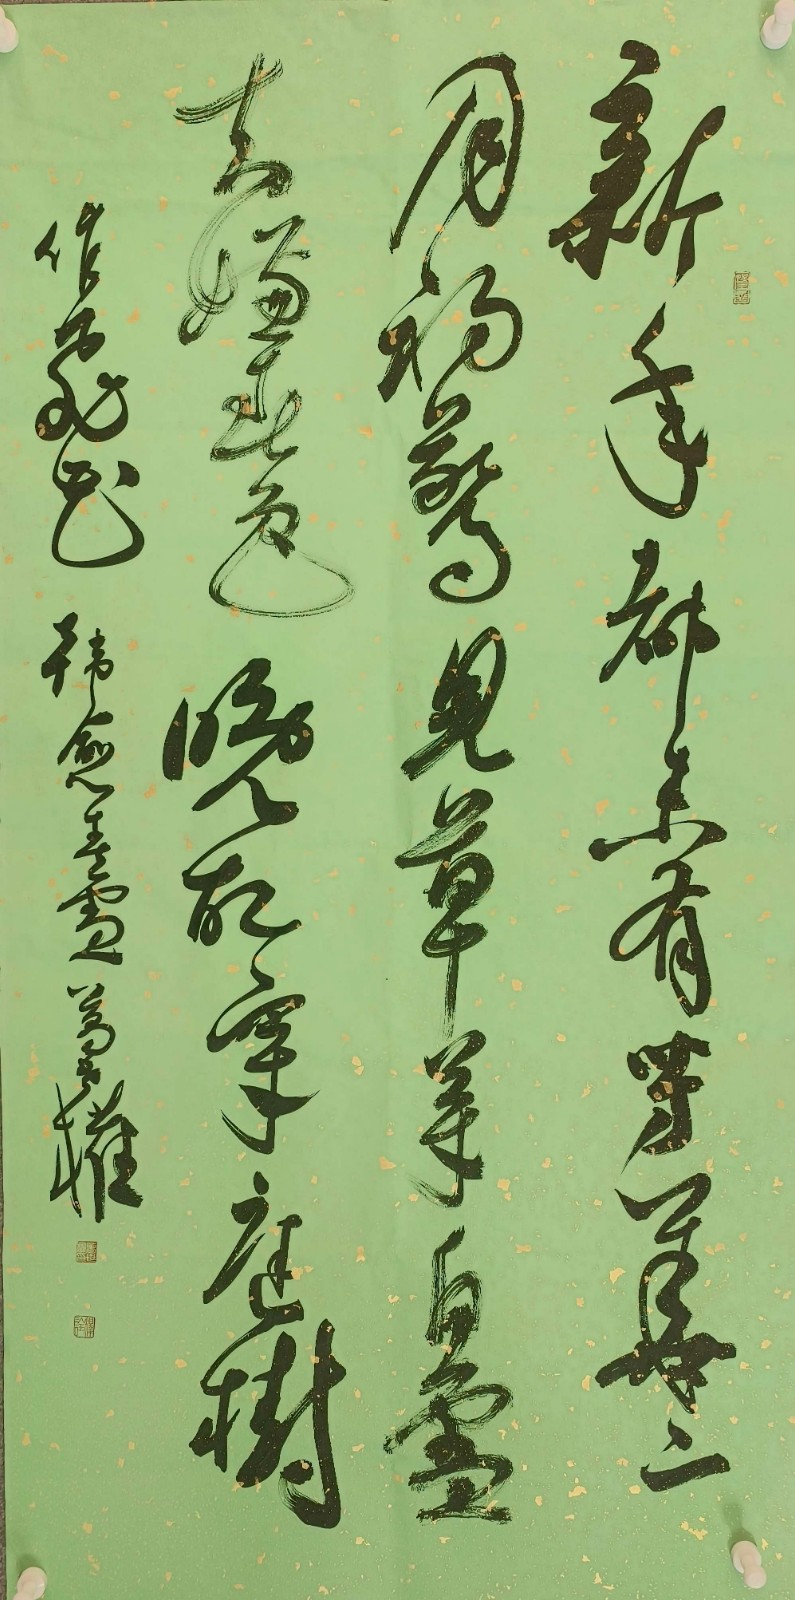 新年都未有芳華二
月初驚見草芽白雪
却嫌春色晚故穿庭樹
作飛花 韓愈春雪